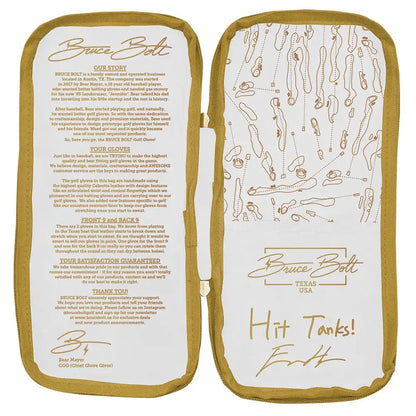 Bruce Bolt
OUR STORY
BRUCE BOLT is a family owned and operated business
located in Austin, TX. The company was started
in 2017 by Bear Mayer, a 16 year old baseball player,
who wanted better batting gloves and needed gas money
for his new '85 Landcruiser, "Jennifer". Bear talked his dad
into investing into his little startup and the rest is history.
After baseball, Bear started playing golf, and naturally,
he wanted better golf gloves. So with the same dedication
to craftsmanship, design and premium materials, Bear used
his experience to design prototype golf gloves for himself
and his friends. Word got out and it quickly became
one of our most requested products.
So, here you go, the BRUCE BOLT Golf Glove!
YOUR GLOVES
Just like in baseball, we are TRYING to make the highest
quality and best fitting golf gloves in the game.
We believe design, materials, craftsmanship and AWESOME
customer service are the keys to making great products.
The golf gloves in this bag are handmade using
the highest quality Cabretta leather with design features
like an articulated wrist and conical fingertips which we
pioneered in our batting gloves and are carrying over to our
golf gloves. We also added new features specific to golf
like our moisture resistant liner to keep our gloves from
stretching once you start to sweat.
FRONT 9 and BACK 9
There are 2 gloves in this bag. We know from playing
in the Texas heat that leather starts to break down and
stretch when you start to sweat. So we thought it would be
smart to sell our gloves in pairs. One glove for the front 9
and one for the back 9 (or really so you can rotate them
throughout the round so they can dry between holes).
YOUR SATISFACTION GUARANTEED
We take tremendous pride in our products and with that
comes our commitment - if for any reason you aren't totally
satisfied with any of our products, contact us and we'll
do our best to make it right.
THANK YOU!
BRUCE BOLT sincerely appreciates your support.
We hope you love our products and tell your friends
about what we're doing. Please follow us on Instagram
@brucebolt.golf and sign up for our newsletter
at www.brucebolt.us for exclusive deals
and new product announcements.
Bear Mayer
CGG (Chief Glove Giver)
Bruce Bolt
TEXAS
USA
Hit Tanks!